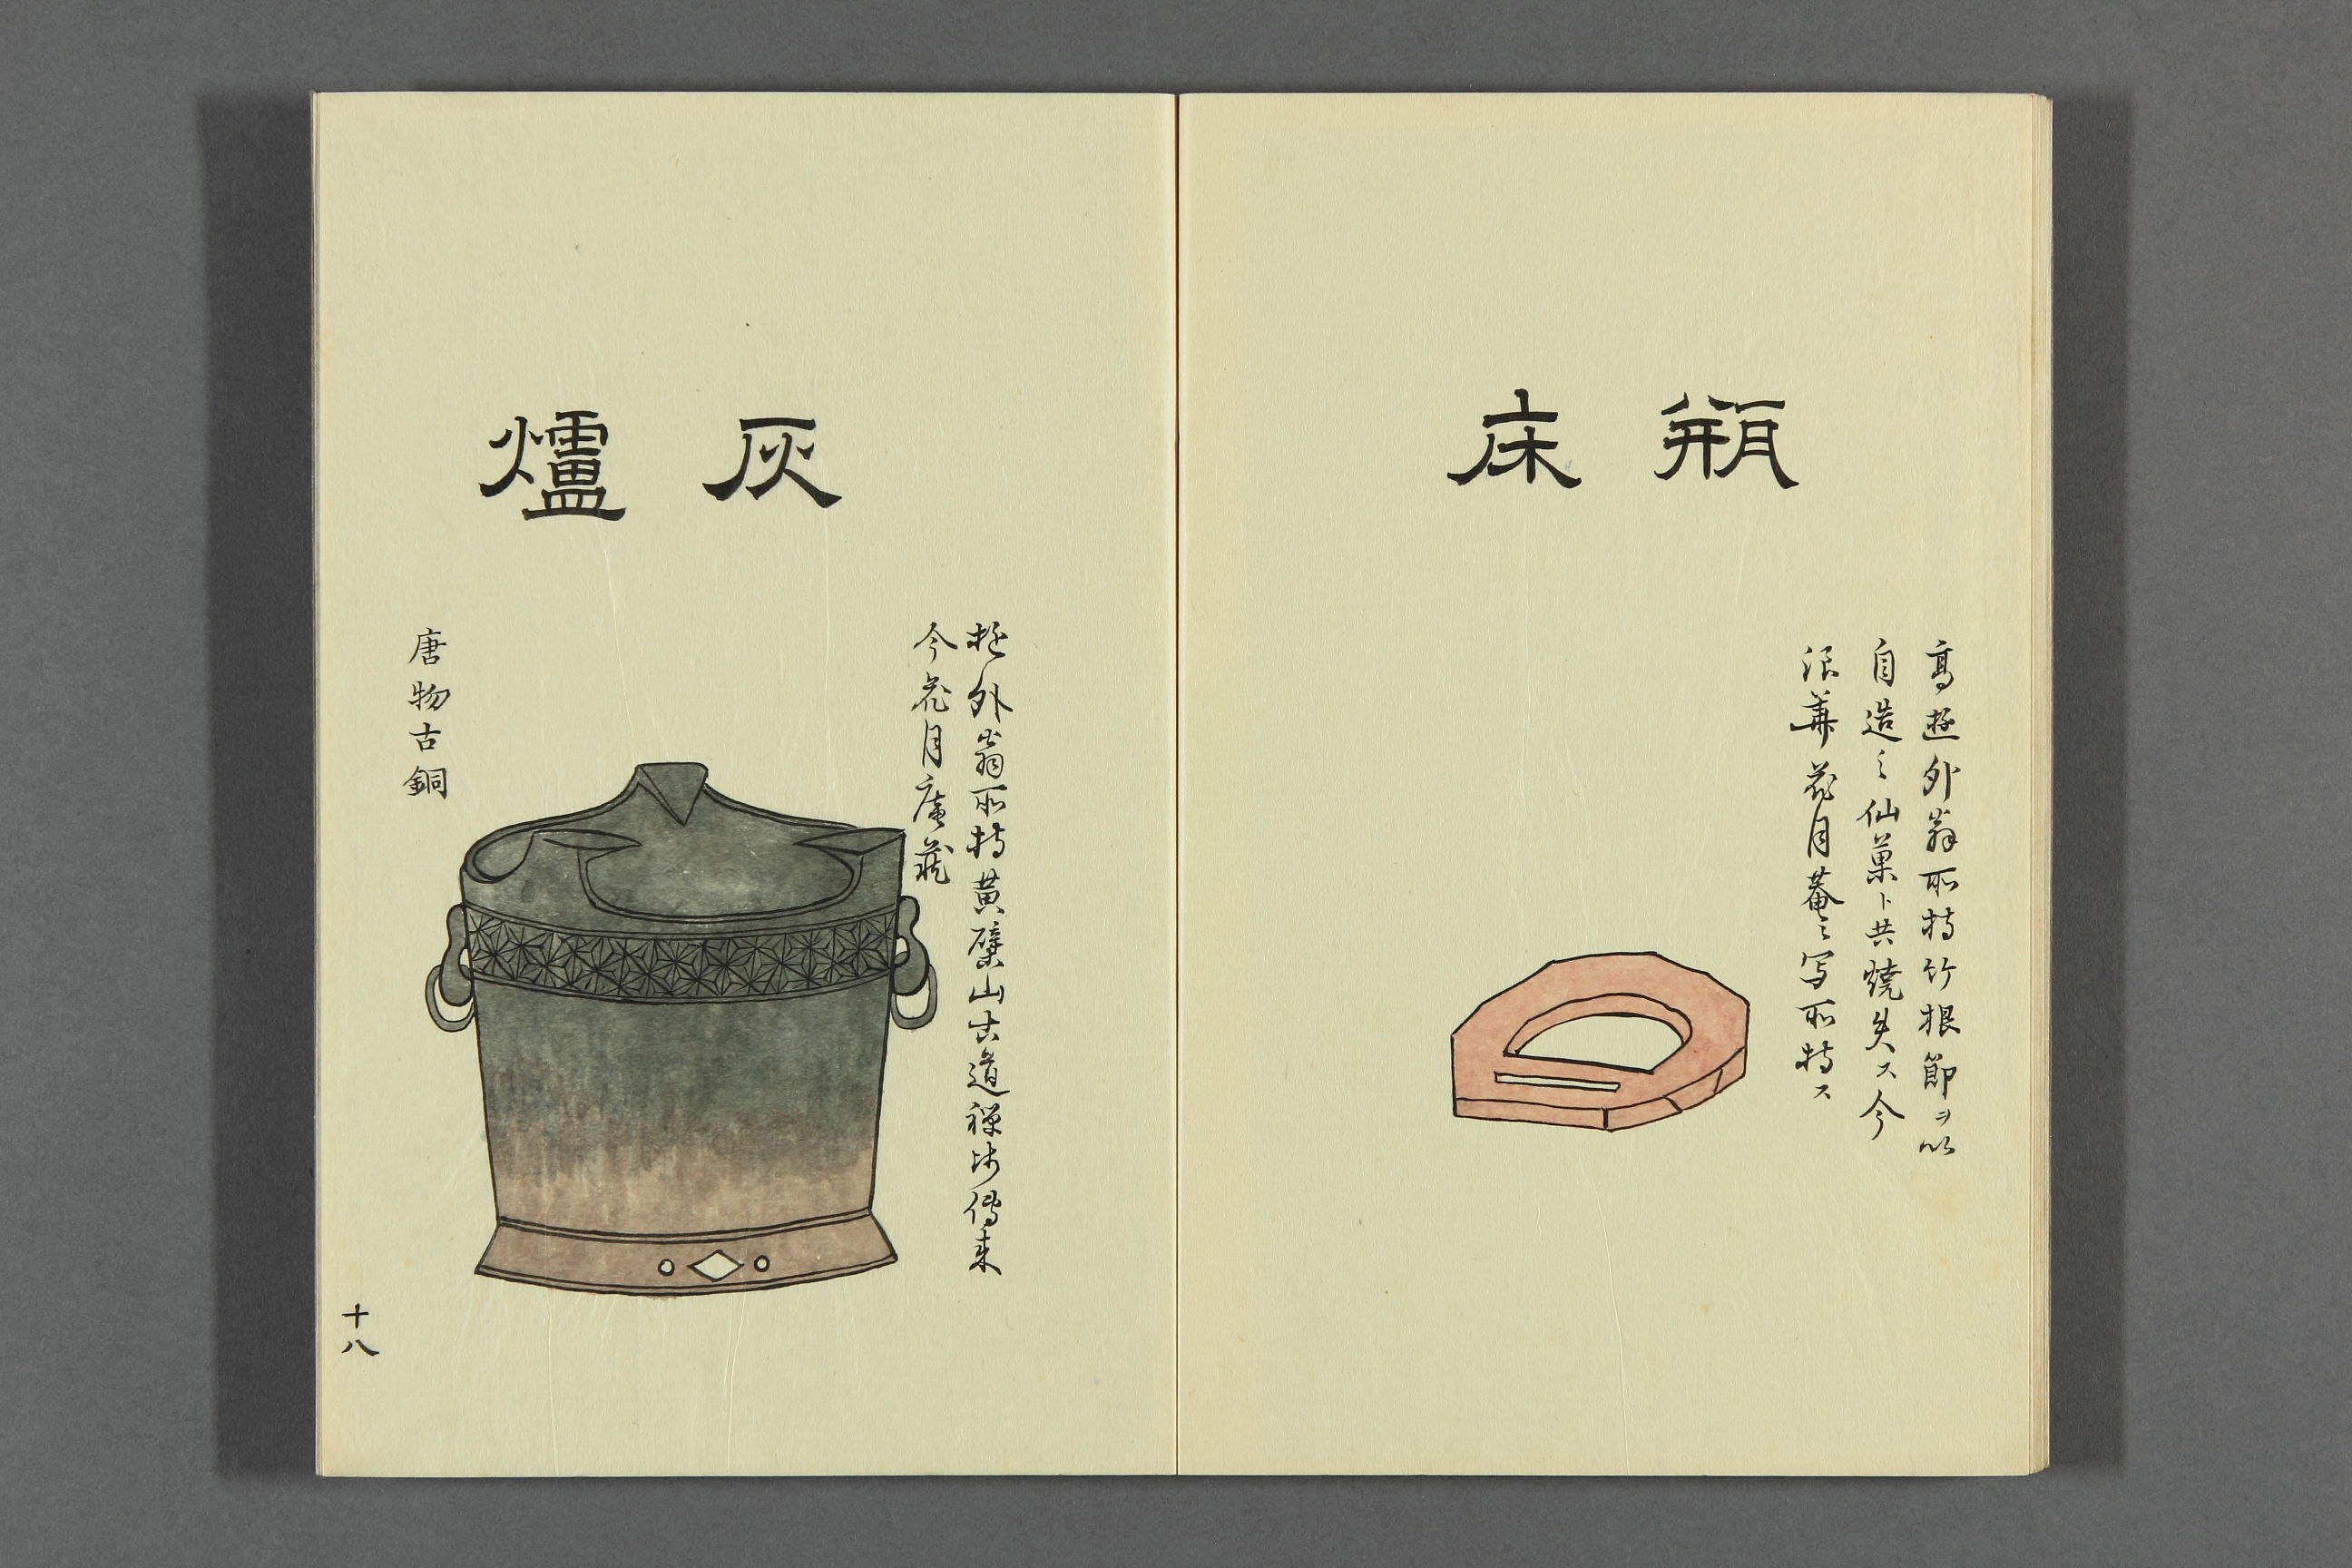 瓶床
高遊外翁所持竹根節ヲ以
自造之仙菓ト共焼失ス今
浪華花月菴之写所持ス
灰爐
遊外翁所持黄檗山古道禅師傳来
今花月庵蔵
唐物古銅
十八